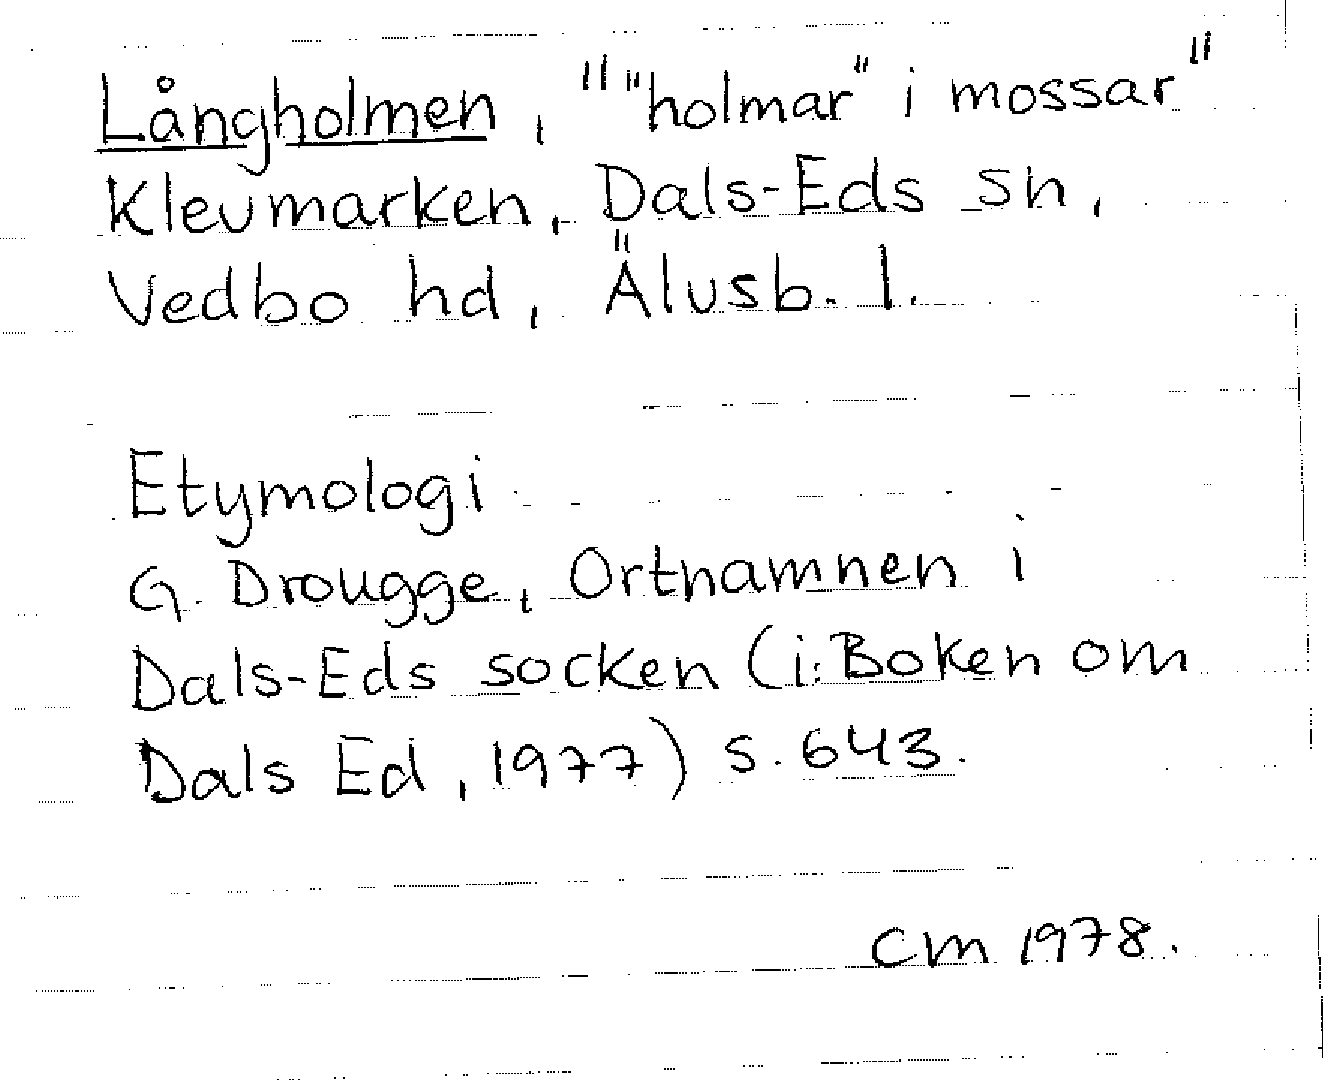 Långholmen, ""holmar" i mossar"
Klevmarken, Dals-Eds sn,
Vedbo hd, Älvsb. l.
Etymologi
G. Drougge, Ortnamnen i
Dals-Eds socken (i: Boken om
Dals Ed, 1977) s. 643.
CM 1978.